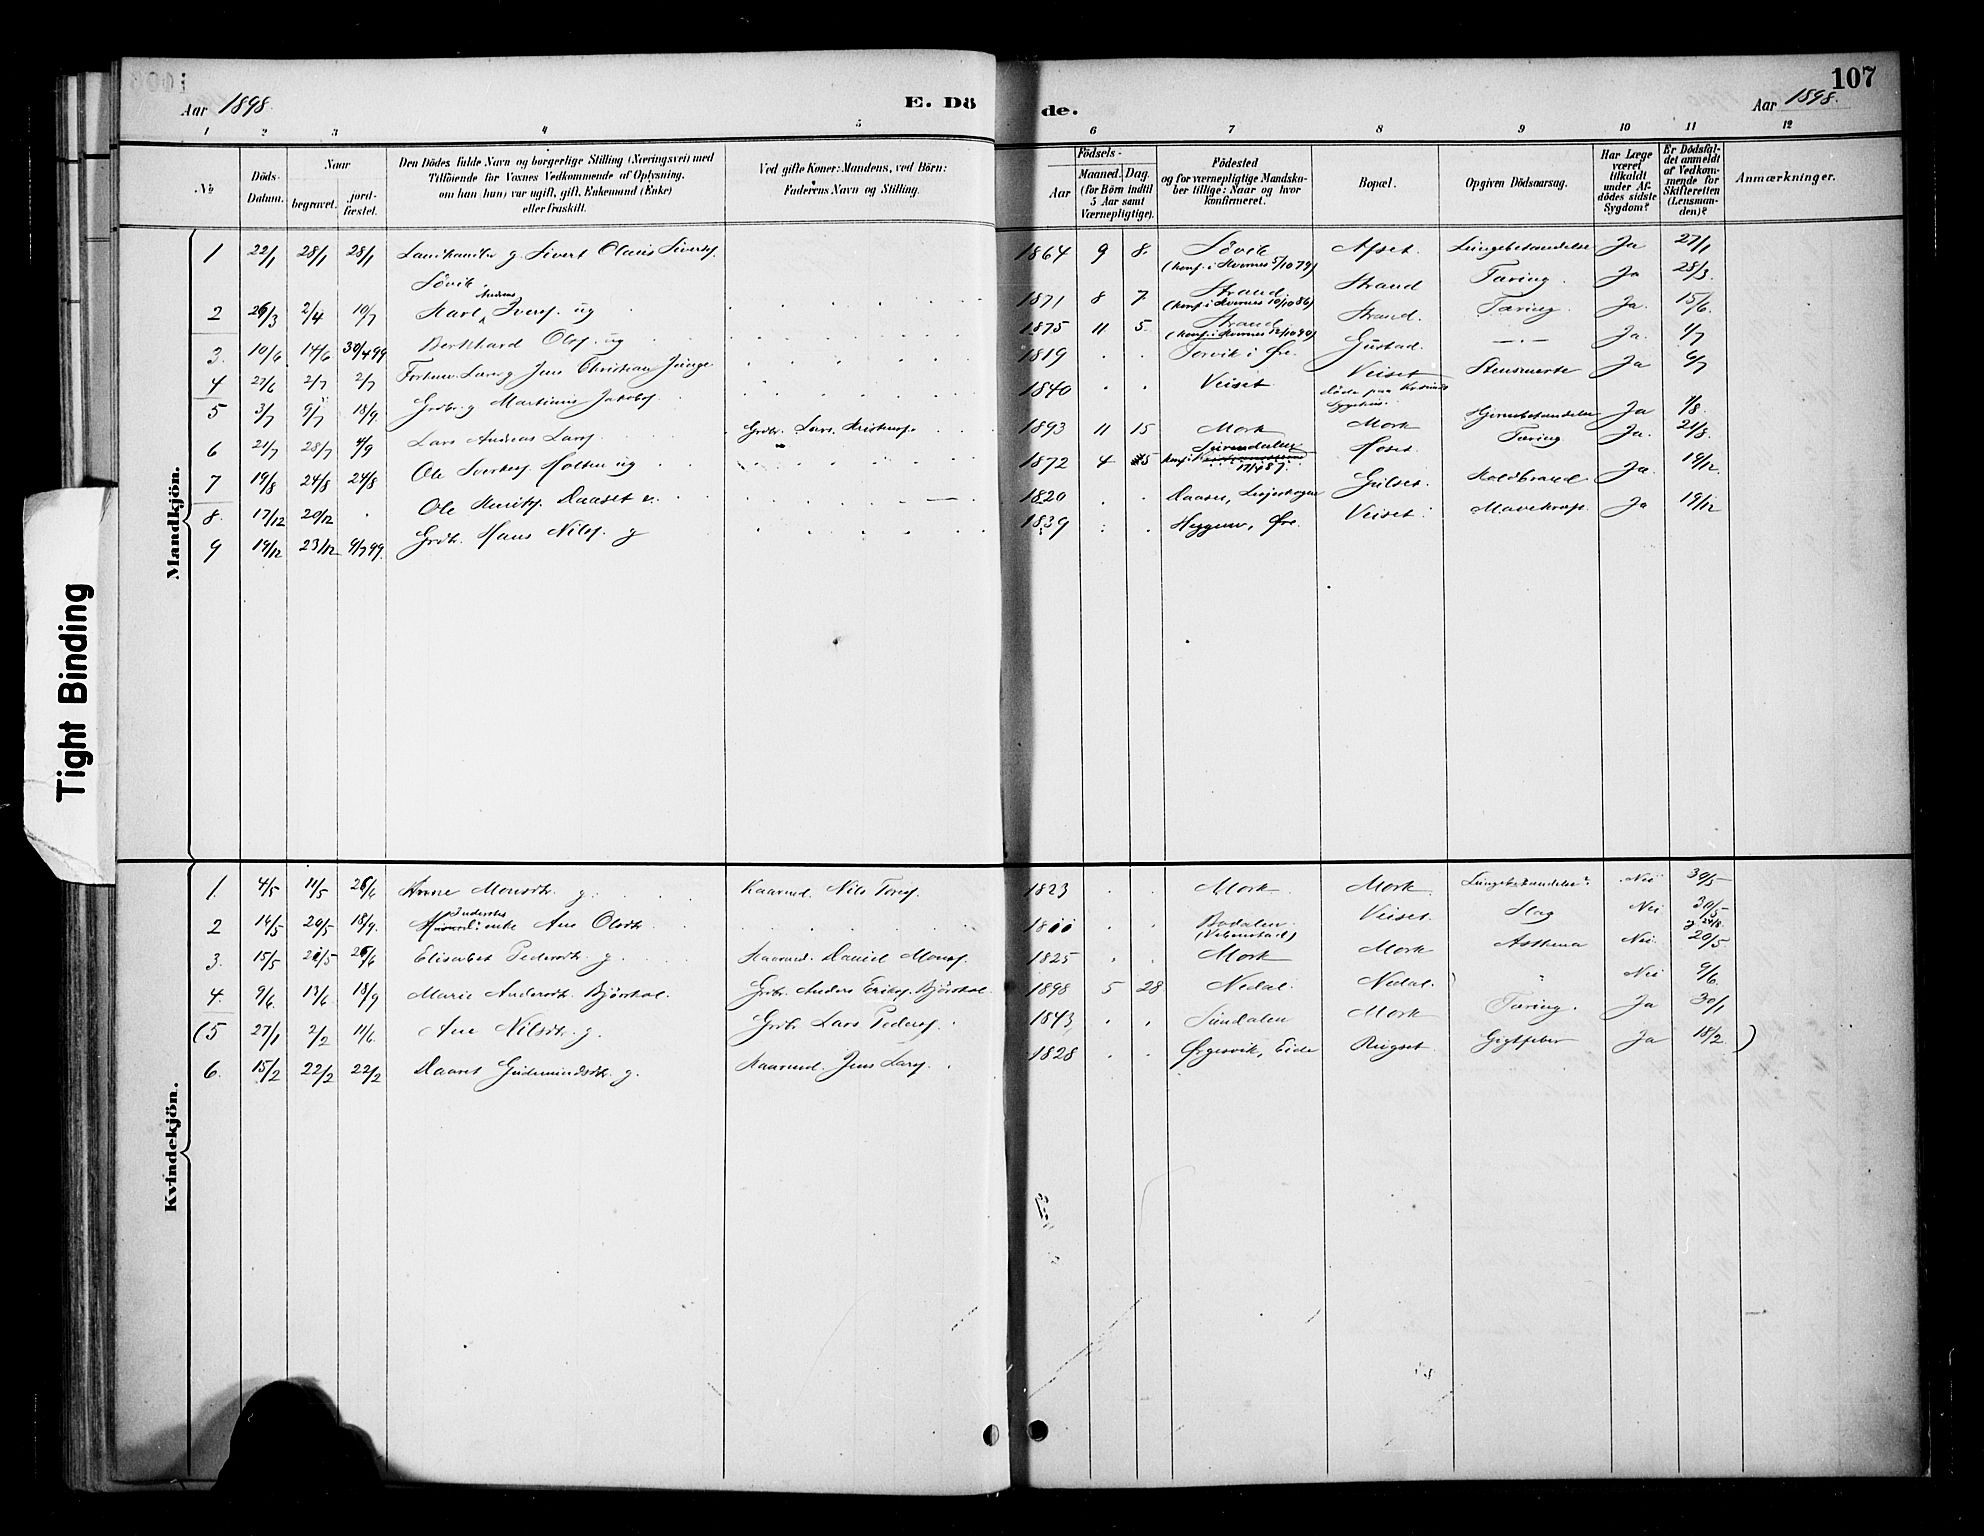 107
Aar 1898.
E. Dö
de.
Aar 1898.
1 2 3 4 5 6 7 8 9 10 11 12
No
Döds-Datum.
Naar
begravet.
jordfæstet.
Den Dödes fulde Navn og borgerlige Stilling (Næringsvei) med
Tilföiende for Voxnes Vedkommende af Oplysning,
om han (hun) var ugift, gift, Enkemand (Enke)
eller fraskilt.
Ved gifte Koner: Mandens, ved Börn:
Faderens Navn og Stilling.
Födsels-
Aar
Maaned.
Dag.
(for Börn indtil
5 Aar samt
Værnepligtige).
Födested
og for værnepligtige Mandskaber tillige: Naar og hvor
konfirmeret.
Bopæl.
Opgiven Dödsaarsag.
Har Læge
været
tilkaldt
under Afdödes sidste
Sygdom?
Er Dödsfaldet anmeldt
af Vedkommende for
Skifteretten
(Lensmanden)?
Anmærkninger.
Mandkjön.
1 22/1 28/1 28/1 g. Sivert Olaus Siverts. Søvik 1864 9 8. Søvik (konf. i Kvernes 5/10 79) Afset. Lungebetændelse Ja 27/1
2 26/3 2/4 10/7 Karl Andreas Ivers. ug 1871 8 7 Strand (konf. i Kvernes 10/10 86) Strand Tæring. Ja 28/3
3. 10/6 14/6 30/4 99 Bernhard Ols. ug 1875 11 5. Strand (konf. i Kvernes 12/10 90) Strand. Tæring. Ja. 15/6
4 27/6 2/7 2/7 g Jens Christian Junge 1819 Torvik i Øre. Gustad. — " — Ja. 1/7
5 3/7 9/7 18/9. Grdbr. g Martinus Jakobs. 1840 Veiset Veiset døde paa Sygehus. Stensmerte Ja 6/7
6 21/7 28/7 4/9 Lars Andreas Lars. Grdbr. Lars 1893 11 15 Mork Mork Hjernebetændelse Ja 1/8
7 19/8 24/8 24/8 Ole Sverkes. Holten ug 1872 4 Surendalen Hoset. Tæring Ja. 21/8.
8. 17/12 20/12 Ole Daaset e. 1820 Gulset. Koldbrand Ja. 19/12
9 19/12 23/12 4/7 99. Grdbr. Hans Nils. g 1839 Heggem, Øre. Veiset. Mavekræft Ja 19/12
Kvindekjön.
1. 4/5 11/5 26/6 Anne Monsdtr. g. Kaarmd. Nils Tores. 1823 Mork. Mork. Lungebetændelse? Nei 30/5
2 14/5 20/5 18/9. Inderstes enke Ane Olsdtr. Bodalen Veiset. Slag Nei 30/5
3. 15/5 21/5 26/6 Elisabet Pedersdtr. g. Kaarmd. Daniel Mons. 1825 Mork Mork Asthma Nei. 20/5
4. 9/6 13/6 18/9 Marie Andersdtr. Bjørshol. Grdbr. Anders Eriks. Bjørshol. 1898 5 28 Nedal. Nedal. " Nei 9/6.
(5 27/1 2/2 11/6. Ane Nilsdtr. g. Grdbr. Lars Peders. 1843 Sundalen Mork Tæring. Ja 30/1
6. 15/2 22/2 22/2 Daaret Gudmundsdtr. g. Kaarmd. Jens Lars. 1828 Ørgesvik, Eide Rugset. Gigtfeber Ja 18/2. )
Tight Binding